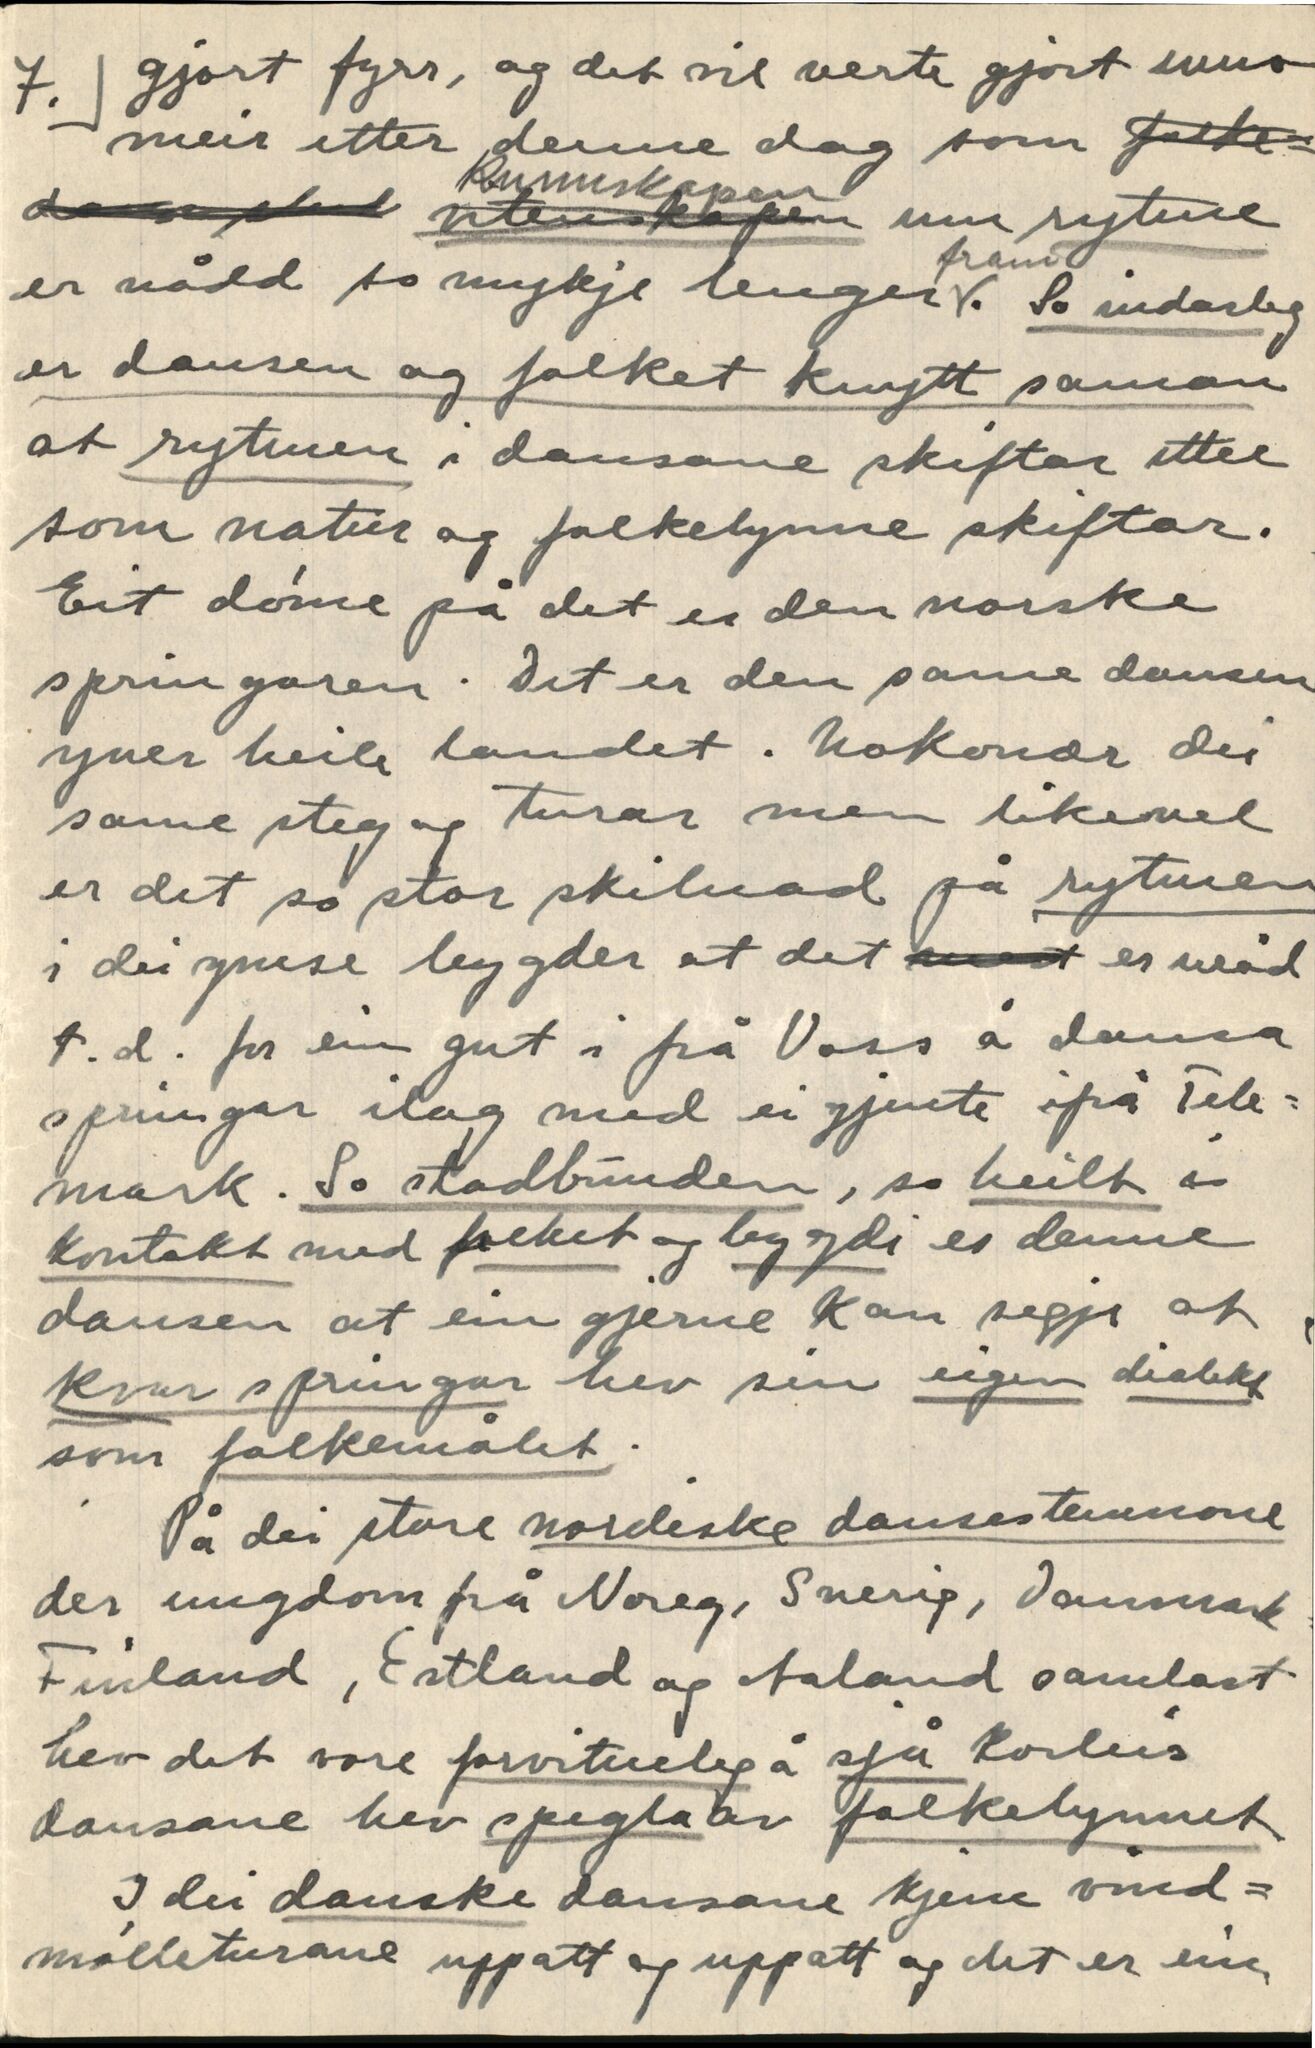 7. gjort fyrr, og det vil verta gjort
meir etter denne dag som folke=
Kunnskapen
vitenskapen um rytme
fram
er nådd so mykje lenger. So inderleg
er dansen og folket knytt saman
at rytmen i dansane skiftar etter
som natur og folkelynne skiftar.
Eit døme på det er den norske
springaren. Det er den same dansen
yver heile landet. Nokonær dei
same steg og turar men likevel
er det so stor skilnad på rytmen
i dei ymse bygder at det mest er uråd
t.d. for ein gut i frå Voss å dansa
springar ilag med ei gjente ifrå Tele=
mark. So stadbunden, so heilt i
kontakt med folket og bygdi er denne
dansen at ein gjerne kan segja at
kvar springar hev sin eigen dialekt
som folkemålet.
På dei store nordiske dansestemnone
der ungdom frå Noreg, Sverig, Danmark
Finland, Estland og Aaland samlast
hev det vore forvitneleg å sjå korleis
dansane hev spegla av folkelynnet
I dei danske dansane kjem vind=
mølleturane uppatt og uppatt og det er ein